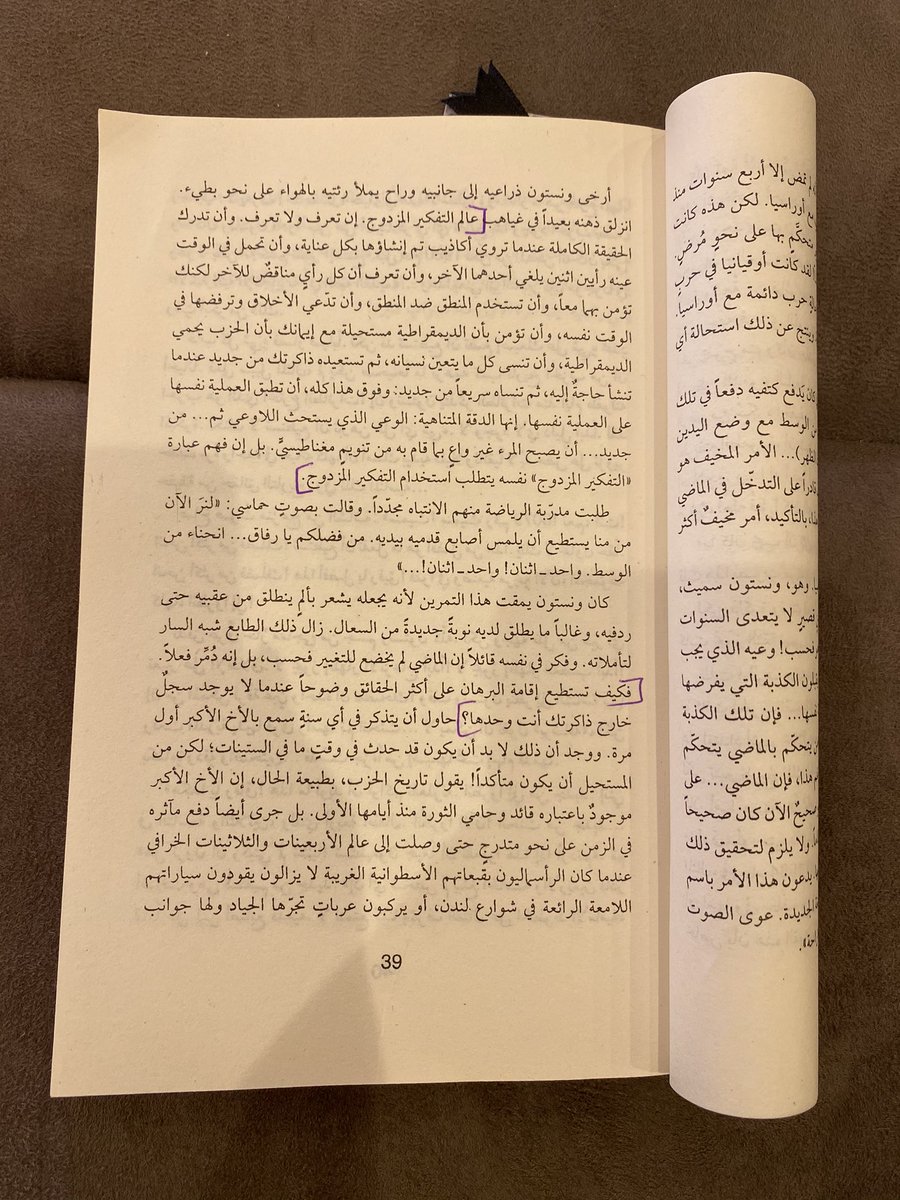 أرخى ونستون ذراعيه إلى جانبيه وراح يملأ رئتيه بالهواء على نحو بطيء.
انزلق ذهنه بعيداً في غياهب عالم التفكير المزدوج. إن تعرف ولا تعرف. وأن تدرك
الحقيقة الكاملة عندما تروي أكاذيب تم إنشاؤها بكل عناية، وأن تحمل في الوقت
عينه رأيين اثنين يلغي أحدهما الآخر، وأن تعرف أن كل رأيٍ مناقضٌ للآخر لكنك
تؤمن بهما معاً، وأن تستخدم المنطق ضد المنطق، وأن تدّعي الأخلاق وترفضها في
الوقت نفسه، وأن تؤمن بأن الديمقراطية مستحيلة مع إيمانك بأن الحزب يحمي
الديمقراطية، وأن تنسى كل ما يتعين نسيانه، ثم تستعيده ذاكرتك من جديد عندما
تنشأ حاجةٌ إليه، ثم تنساه سريعاً من جديد: وفوق هذا كله، أن تطبق العملية نفسها
على العملية نفسها. إنها الدقة المتناهية: الوعي الذي يستحث اللاوعي ثم... من
جديد... أن يصبح المرء غير واعٍ بما قام به من تنويمٍ مغناطيسيٍّ. بل إن فهم عبارة
«التفكير المزدوج» نفسه يتطلب استخدام التفكير المزدوج.
طلبت مدرّبة الرياضة منهم الانتباه مجدّداً. وقالت بصوتٍ حماسي: «لنرَ الآن
من منا يستطيع أن يلمس أصابع قدميه بيديه. من فضلكم يا رفاق... انحناء من
الوسط. واحد ـ اثنان! واحد ـ اثنان!...»
كان ونستون يمقت هذا التمرين لأنه يجعله يشعر بألمٍ ينطلق من عقبيه حتى
ردفيه، وغالباً ما يطلق لديه نوبةً جديدةً من السعال. زال ذلك الطابع شبه السار
لتأملاته. وفكر في نفسه قائلاً إن الماضي لم يخضع للتغيير فحسب، بل إنه دُمِّر فعلاً.
فكيف تستطيع إقامة البرهان على أكثر الحقائق وضوحاً عندما لا يوجد سجلٌ
خارج ذاكرتك أنت وحدها؟ حاول أن يتذكر في أي سنةٍ سمع بالأخ الأكبر أول
مرة. ووجد أن ذلك لا بد أن يكون قد حدث في وقتٍ ما في الستينات؛ لكن من
المستحيل أن يكون متأكداً! يقول تاريخ الحزب، بطبيعة الحال، إن الأخ الأكبر
موجودٌ باعتباره قائد وحامي الثورة منذ أيامها الأولى. بل جرى أيضاً دفع مآثره
في الزمن على نحو متدرجٍ حتى وصلت إلى عالم الأربعينات والثلاثينات الخرافي
عندما كان الرأسماليون بقبعاتهم الأسطوانية الغريبة لا يزالون يقودون سياراتهم
اللامعة الرائعة في شوارع لندن، أو يركبون عرباتٍ تجرّها الجياد ولها جوانب
39
تمض إلا أربع سنوات منذ
مع أوراسيا. لكن هذه كانت
بها على نحوٍ مُرضٍ.
لقد كانت أوقيانيا في حرب
حرب دائمة مع أوراسيا.
وينتج عن ذلك استحالة أي
كان يَدفع كتفيه دفعاً في تلك
من الوسط مع وضع اليدين
الأمر المخيف هو
قادراً على التدخّل في الماضي
بالتأكيد، أمر مخيفٌ أكثر
وهو، ونستون سميث،
قصيرٍ لا يتعدى السنوات
فحسب! وعيه الذي يجب
الكذبة التي يفرضها
فإن تلك الكذبة
يتحكّم بالماضي يتحكّم
هذا، فإن الماضي... على
صحيحٌ الآن كان صحيحاً
ولا يلزم لتحقيق ذلك
يدعون هذا الأمر باسم
الجديدة. عوى الصوت